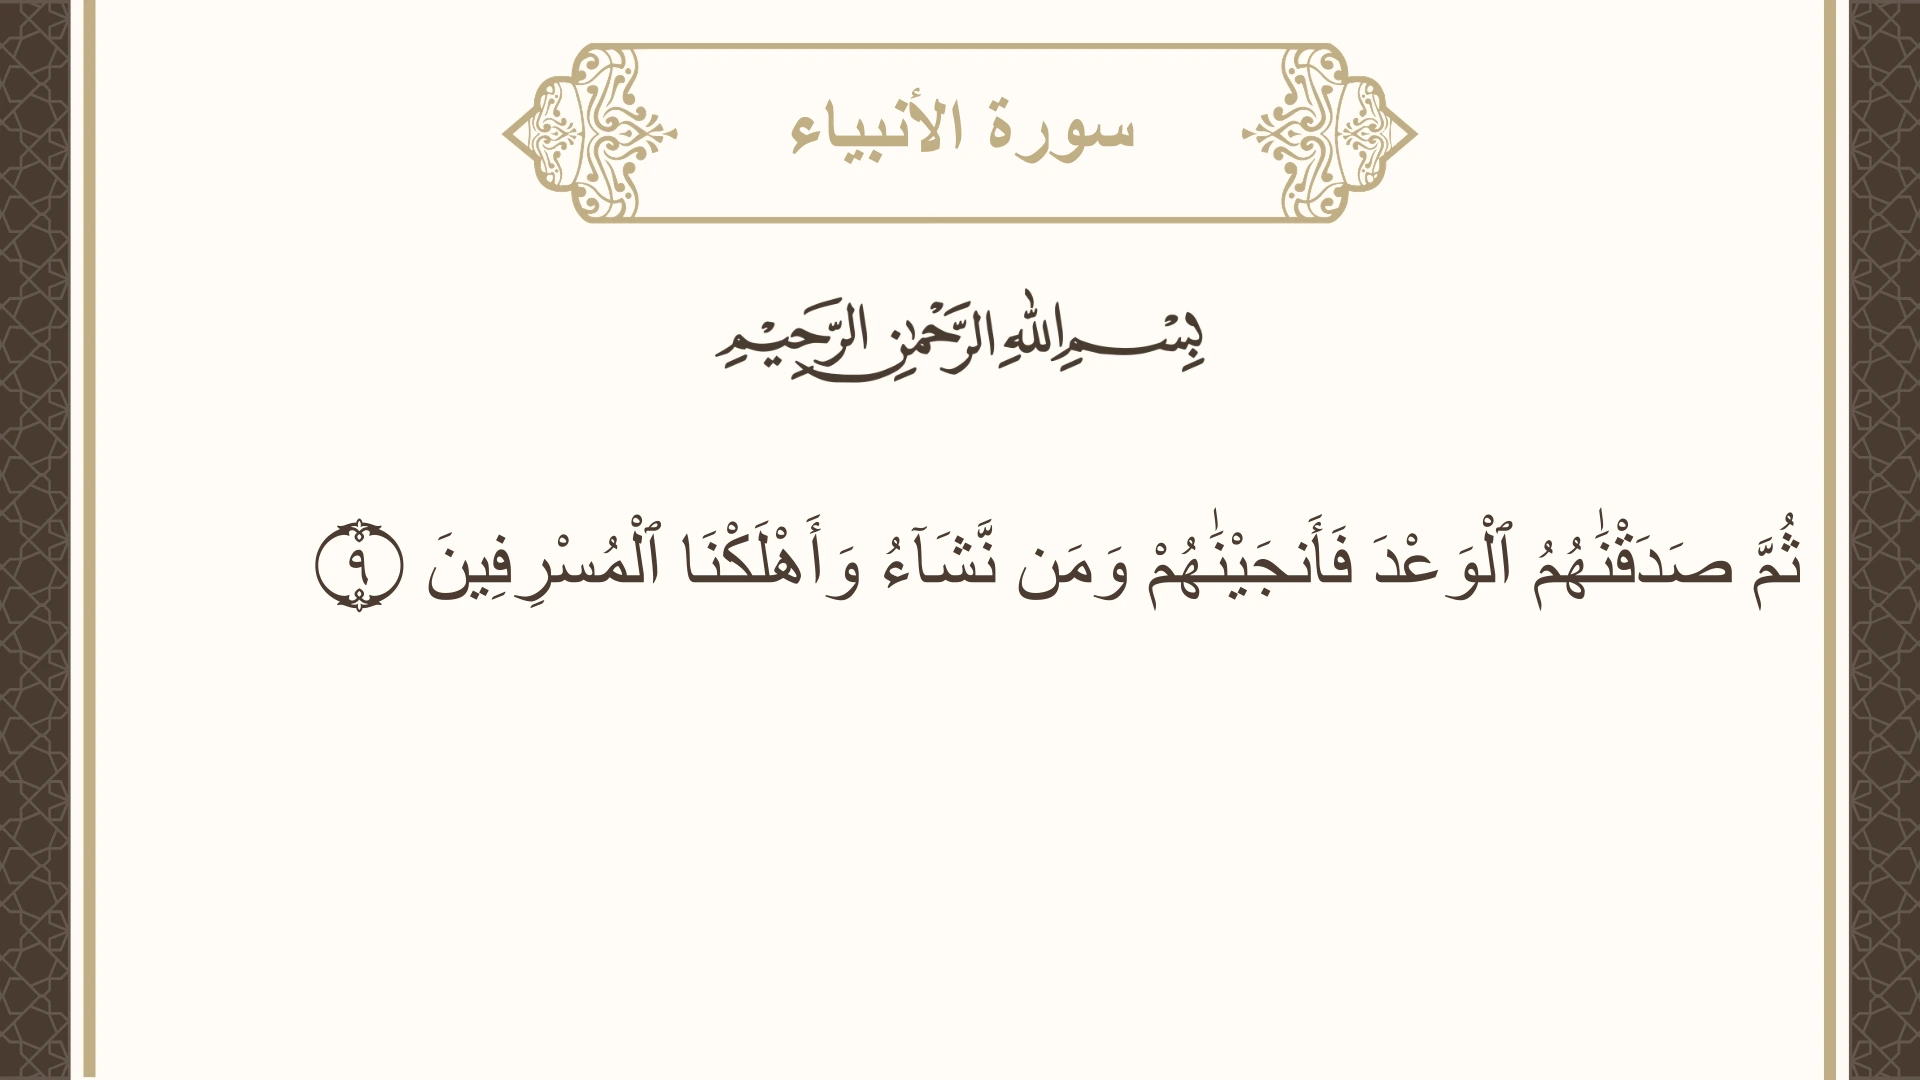 سورة الأنبياء
بِسْمِ اللهِ الرَّحْمٰنِ الرَّحِيْمِ
ثُمَّ صَدَقْنَٰهُمُ ٱلْوَعْدَ فَأَنجَيْنَٰهُمْ وَمَن نَّشَآءُ وَأَهْلَكْنَا ٱلْمُسْرِفِينَ ٩